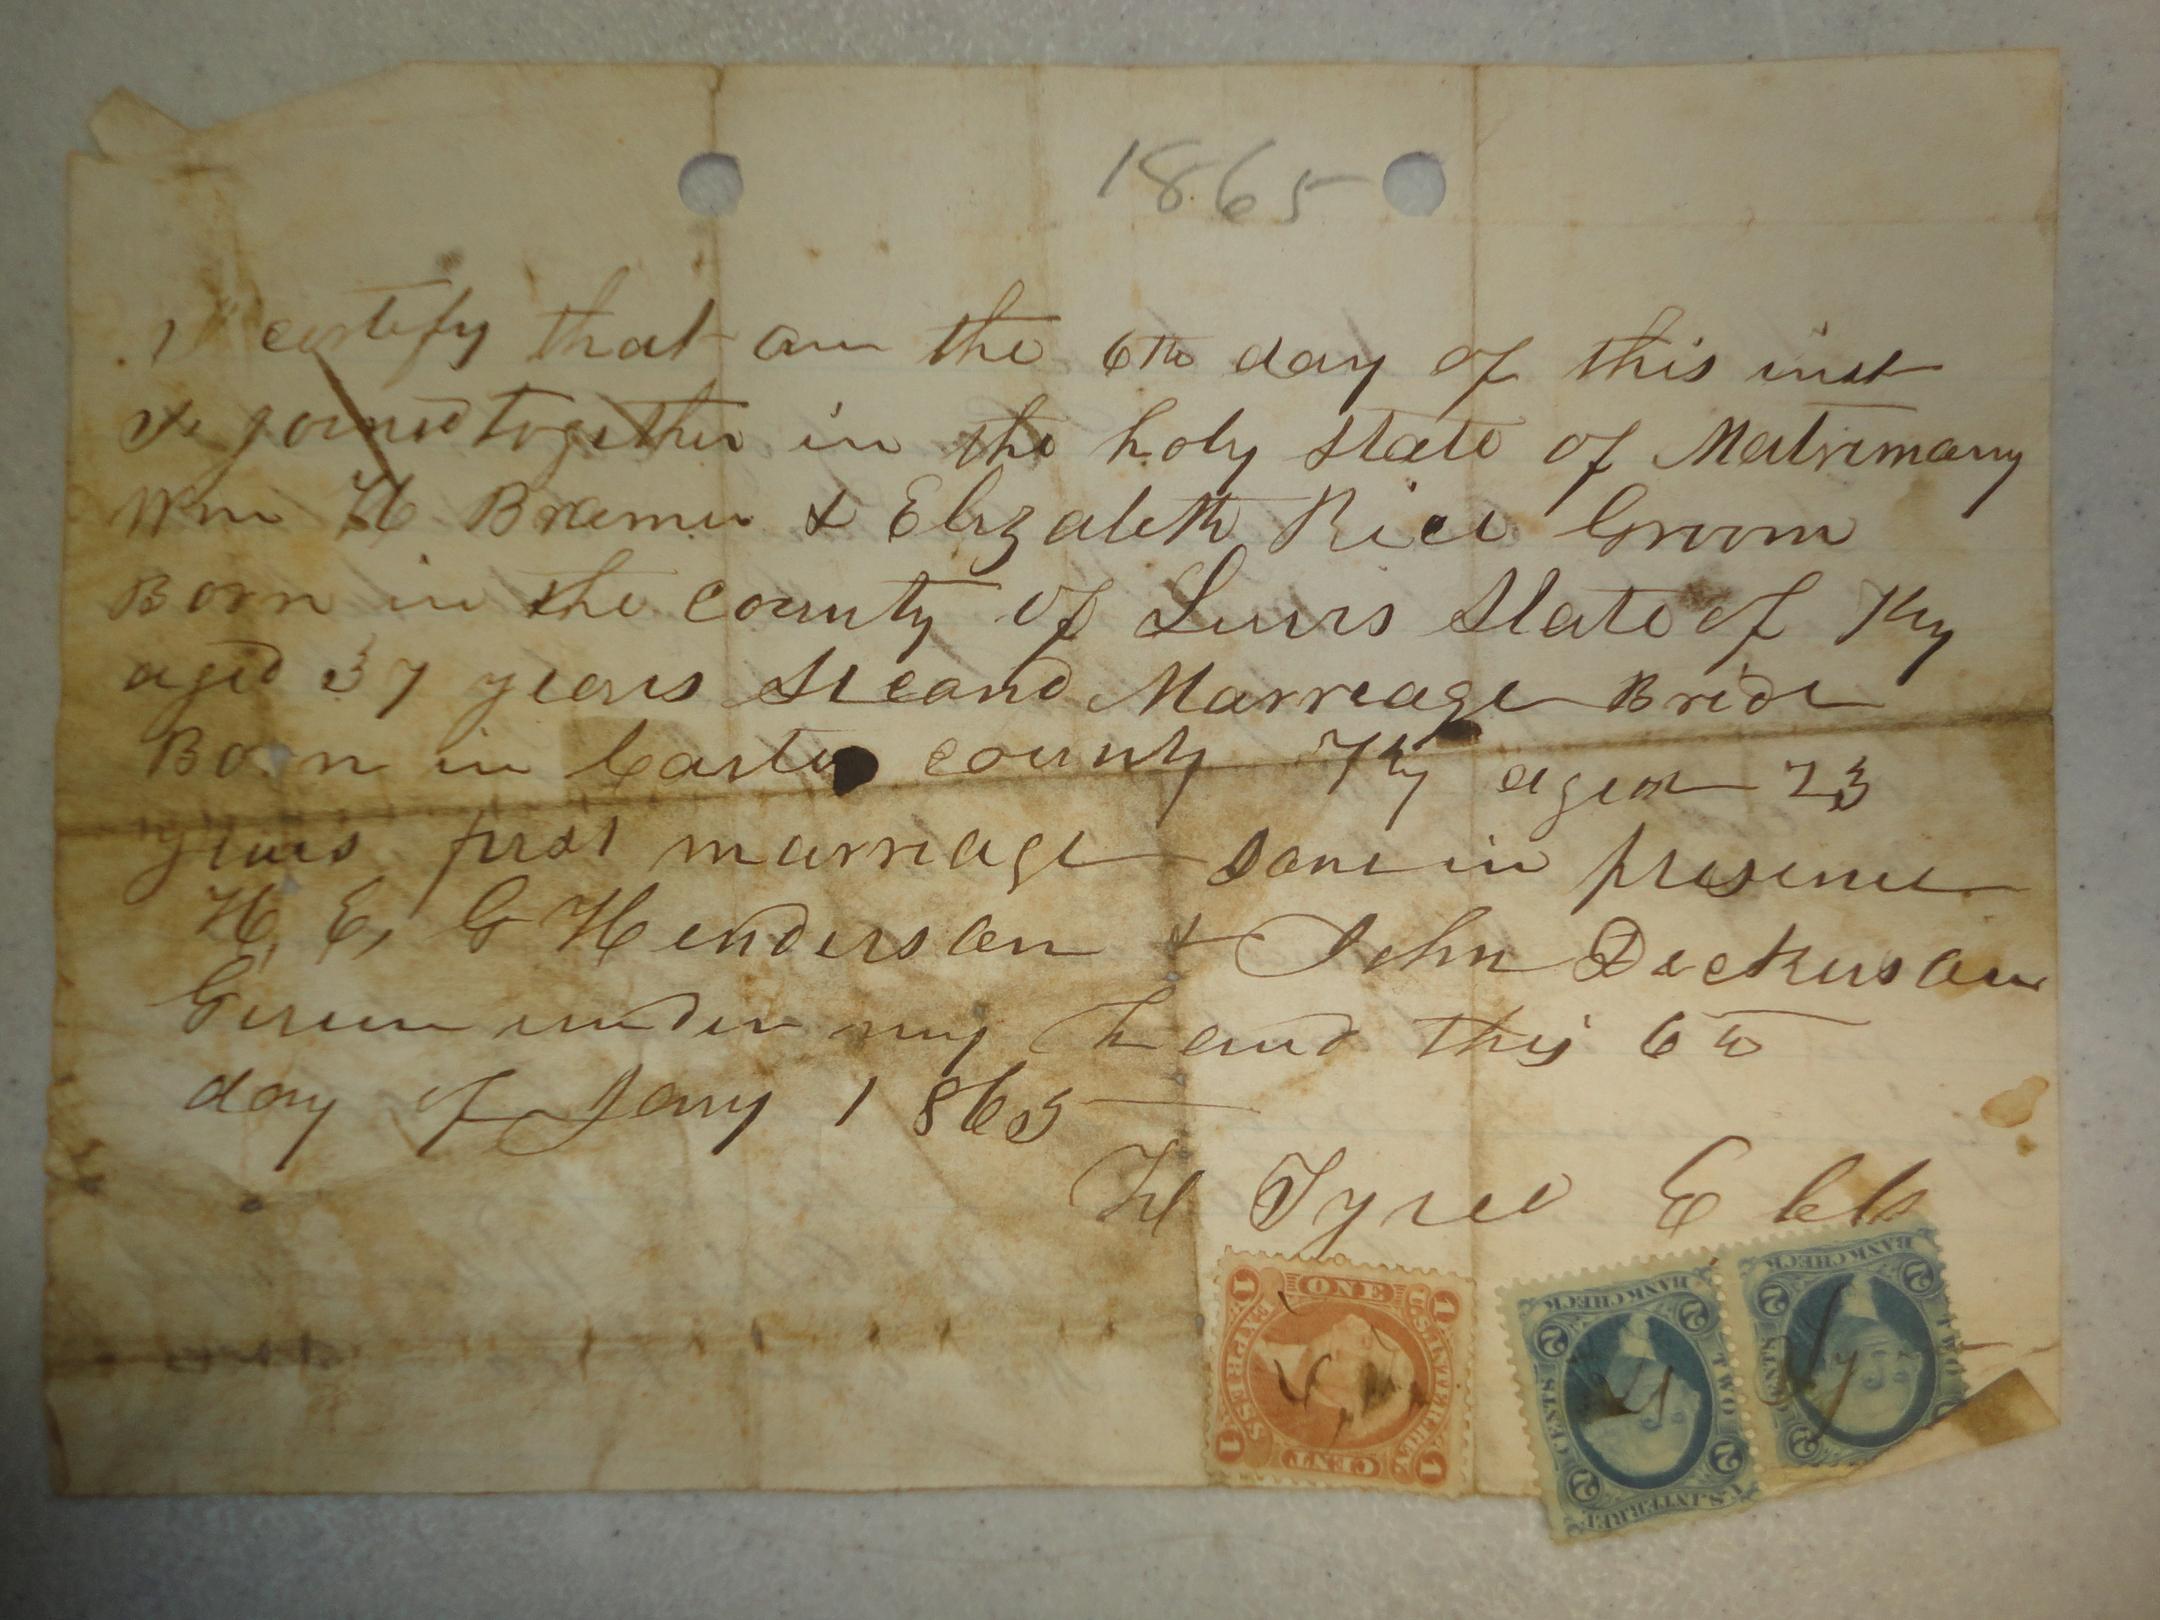 1865
I certify that on the 6th day of this inst
I joined together in the holy state of Matrimony
Wm H Bramer & Elizabeth Rice Groom
Born in the county of Lewis State of Ky
aged 37 years Second Marriage Bride
Born in Carter county Ky aged 23
years first marriage done in presence
H, E, G Henderson & John Dickerson
Given under my hand this 6th
day of Jany 1865
H Tyree Ebbs
1 ONE 1
U.S. INTER. REV.
EXPRESS
1 CENT 1
BANK CHECK
2 TWO 2
CENTS
U.S. INTER. REV.
BANK CHECK
2 TWO
CENTS
2